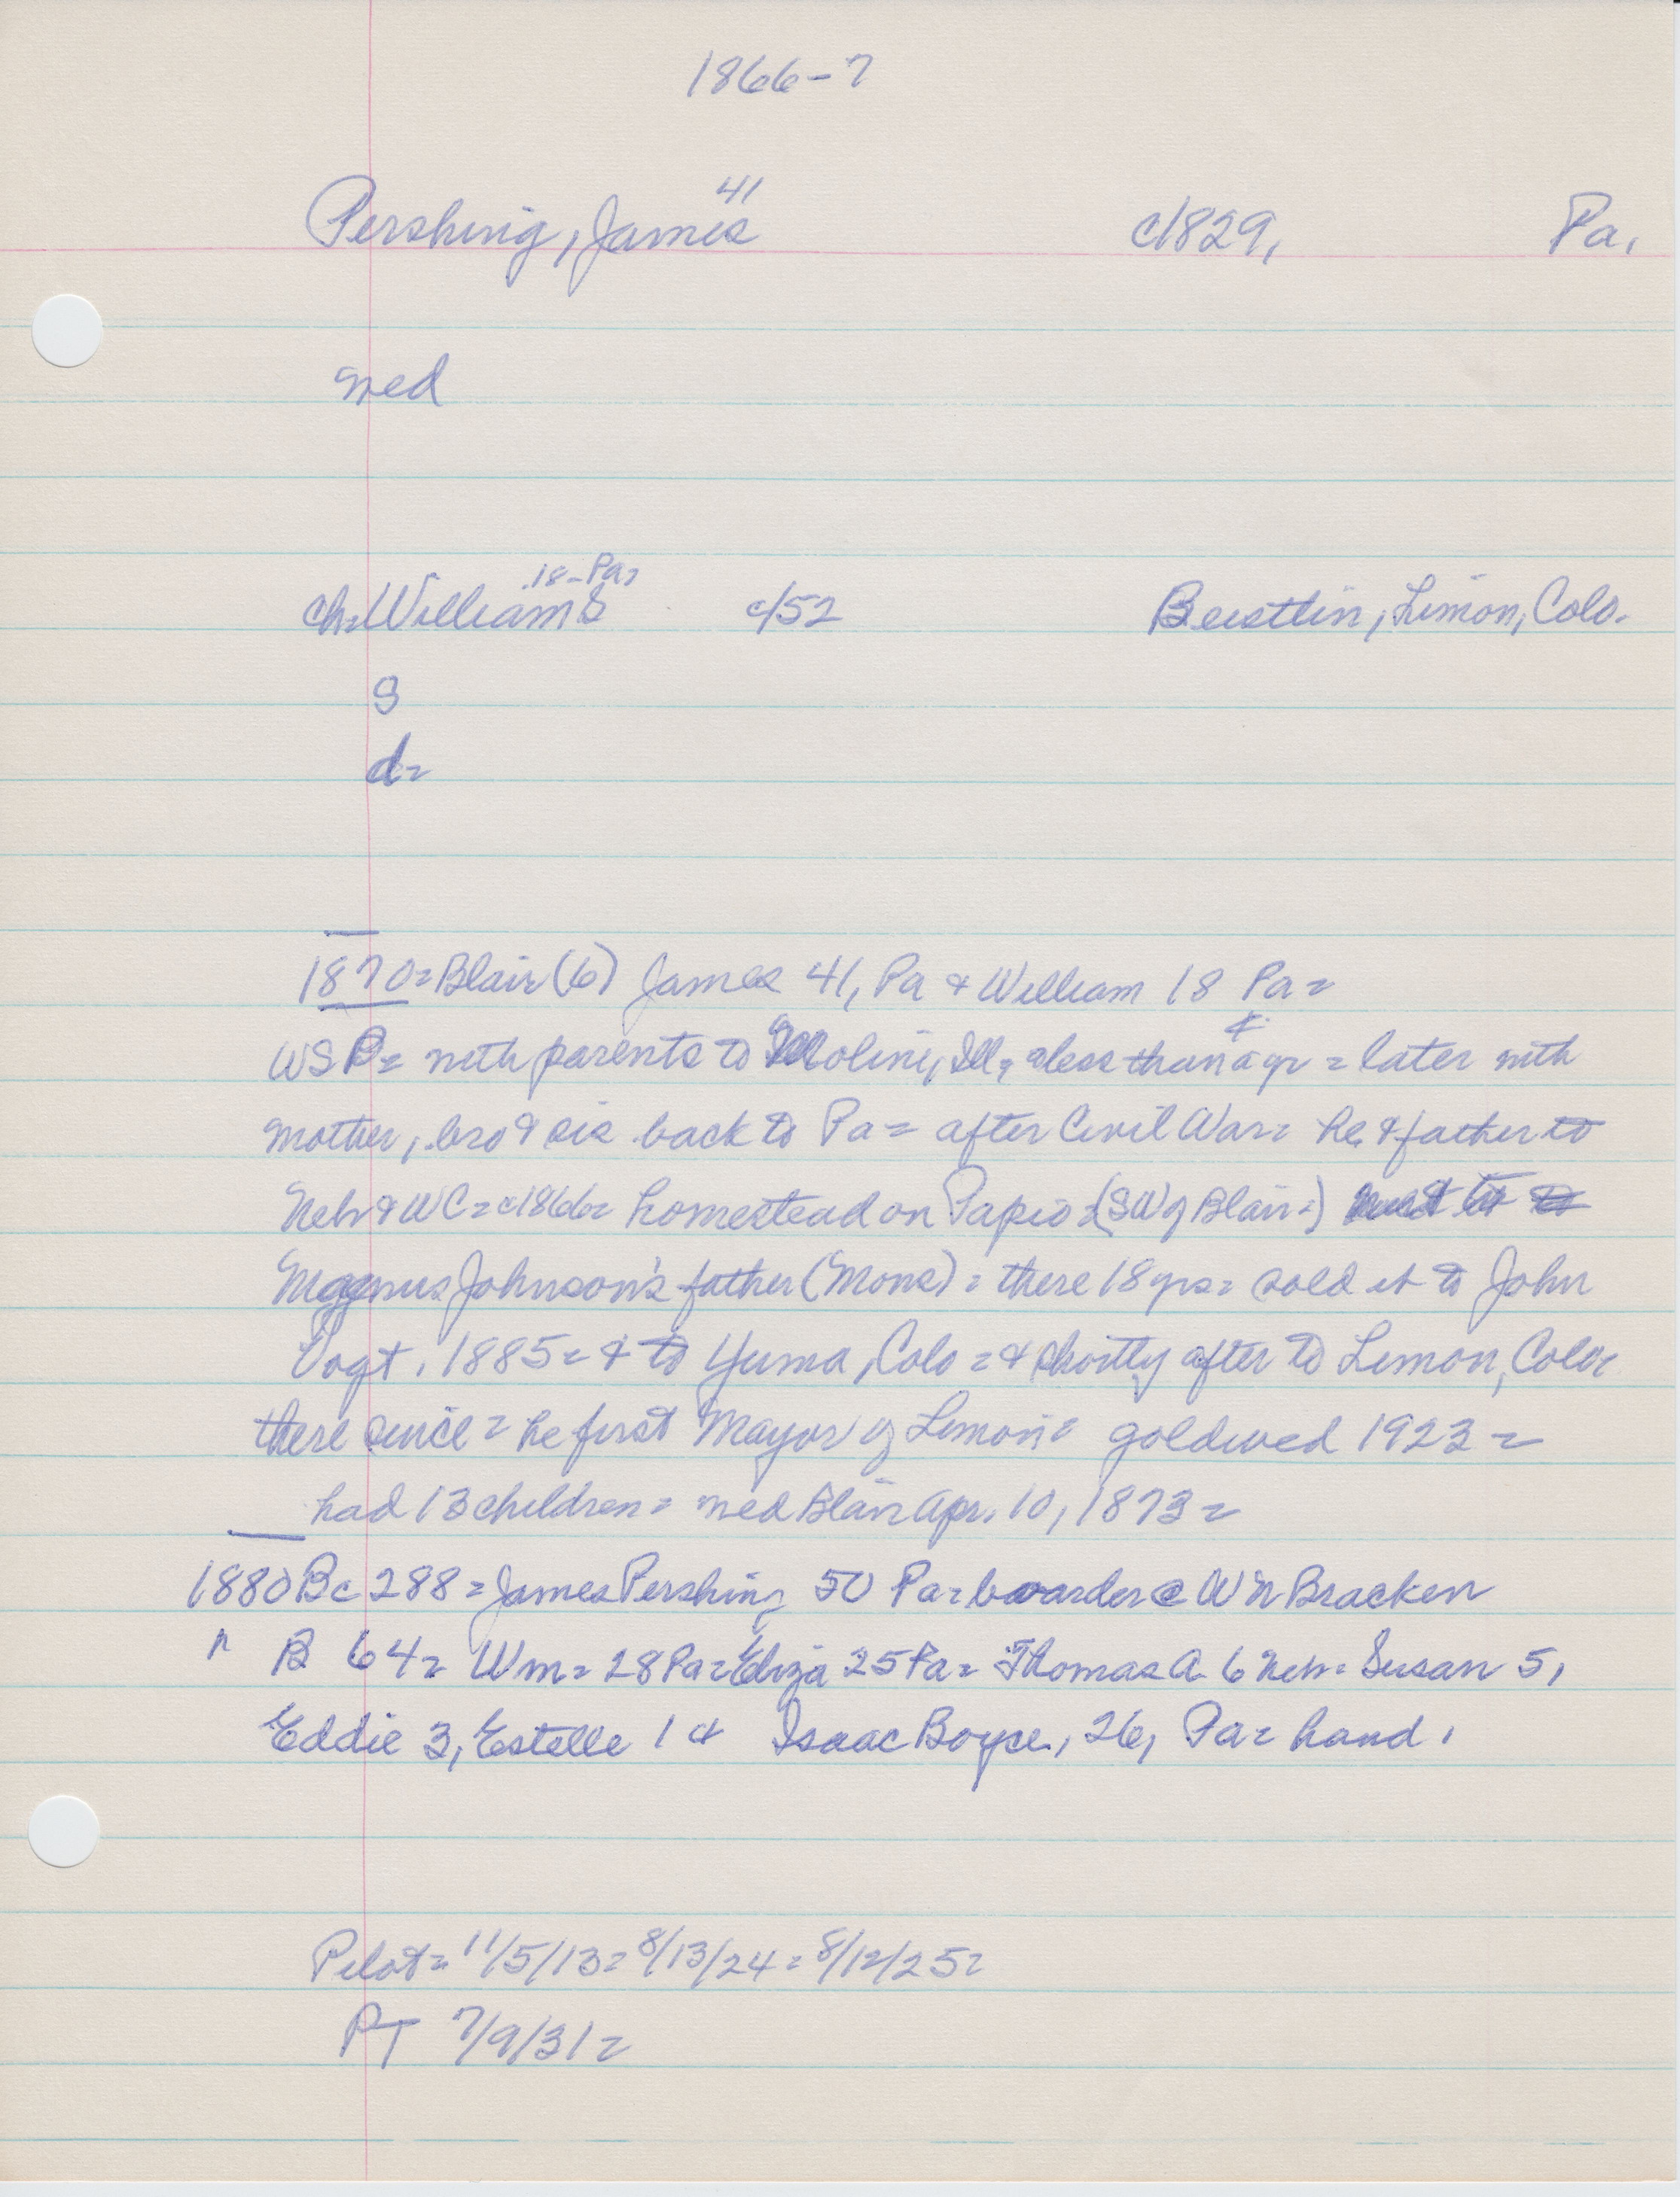 1866-7
41
Pershing, James c1829, Pa.
med
18-Pa=
ch= William S c/52 Burtlin, Limon, Colo.
s
d=
1870= Blair (6) James 41, Pa & William 18 Pa=
WSP= with parents to Moline, Ill, =less than a yr = later with
mother, bro & sis back to Pa= after Civil War= he & father to
Neb & WC= c1866= homestead on Papio= (SW of Blair=) next to
Magnus Johnson's father (Mons) = there 18 yrs= sold it to John
Vogt, 1885= & to Yuma, Colo = & shortly after to Limon, Colo=
there since = he first Mayor of Limon= goldwed 1923=
had 13 children= med Blair Apr. 10, 1873=
1880 Bc 288= James Pershing 50 Pa= boarder @ W N Bracken
" B 64= Wm= 28 Pa= Eliza 25 Pa= Thomas A 6 Neb= Susan 5,
Eddie 3, Estelle 1 & Isaac Boyce, 26, Pa= hand,
Pilot= 11/5/13= 8/13/24= 8/12/25=
PT 7/9/31=